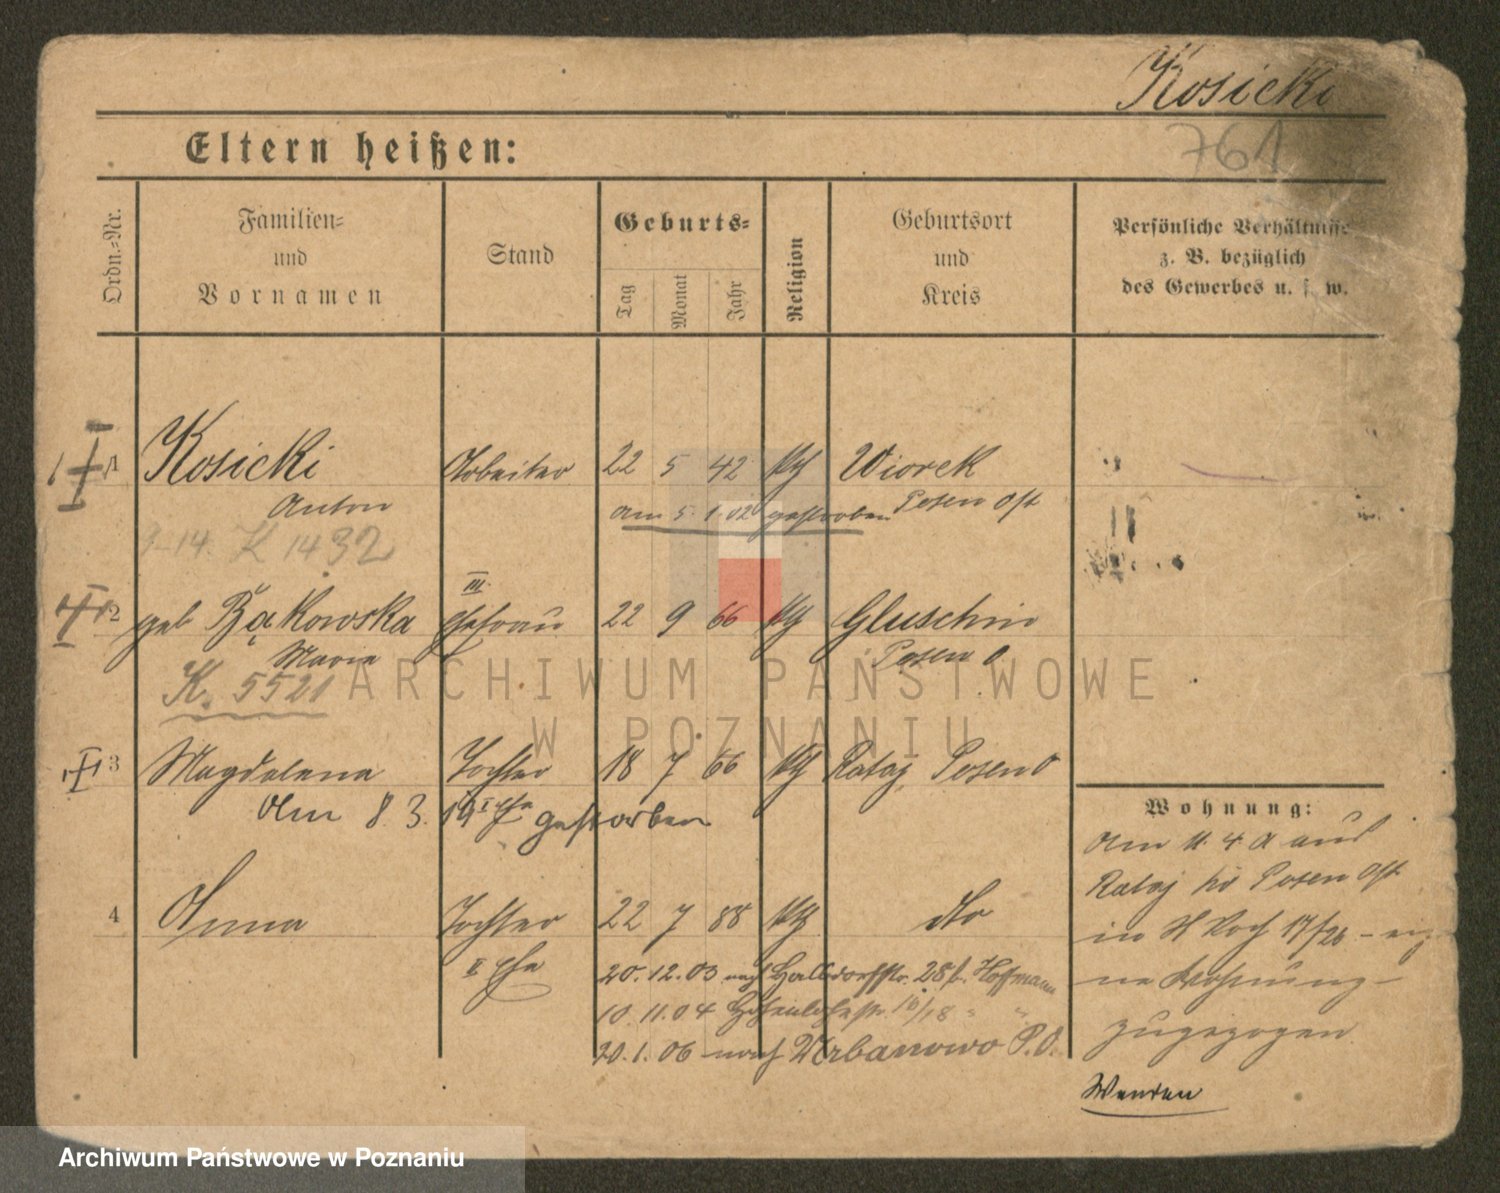 Kosicki
761
Eltern heißen:
Ordn.=Nr.
Familien=
und
Vornamen
Stand
Geburts=
Tag
Monat
Jahr
Religion
Geburtsort
und
Kreis
Persönliche Verhältnisse
z. B. bezüglich
des Gewerbes u. s. w.
1 Kosicki Arbeiter 22 5 42 kth Wiorek
Anton am 5 1.02 gestorben Posen Ost
K 1432
III
2 geb Bąkowska Ehefrau 22 9 66 kth Gluschin
Maria Posen O
K. 5521
ARCHIWUM PAŃSTWOWE
W POZNANIU
3 Magdalena Tochter 18 7 66 kth Rataj Posen O
I Ehe
Am 8. 3. 19 gestorben
4 Anna Tochter 22 7 88 kth dto
II Ehe
20.12.03 nach 28 b. Hoffmann
10.11.04 16/18 " "
20.1.06 nach Urbanowo P.O.
Wohnung:
Am 11. 4 a aus
Rataj Posen Ost
in 17/26
Wohnung
zugezogen
Wenden
Archiwum Państwowe w Poznaniu